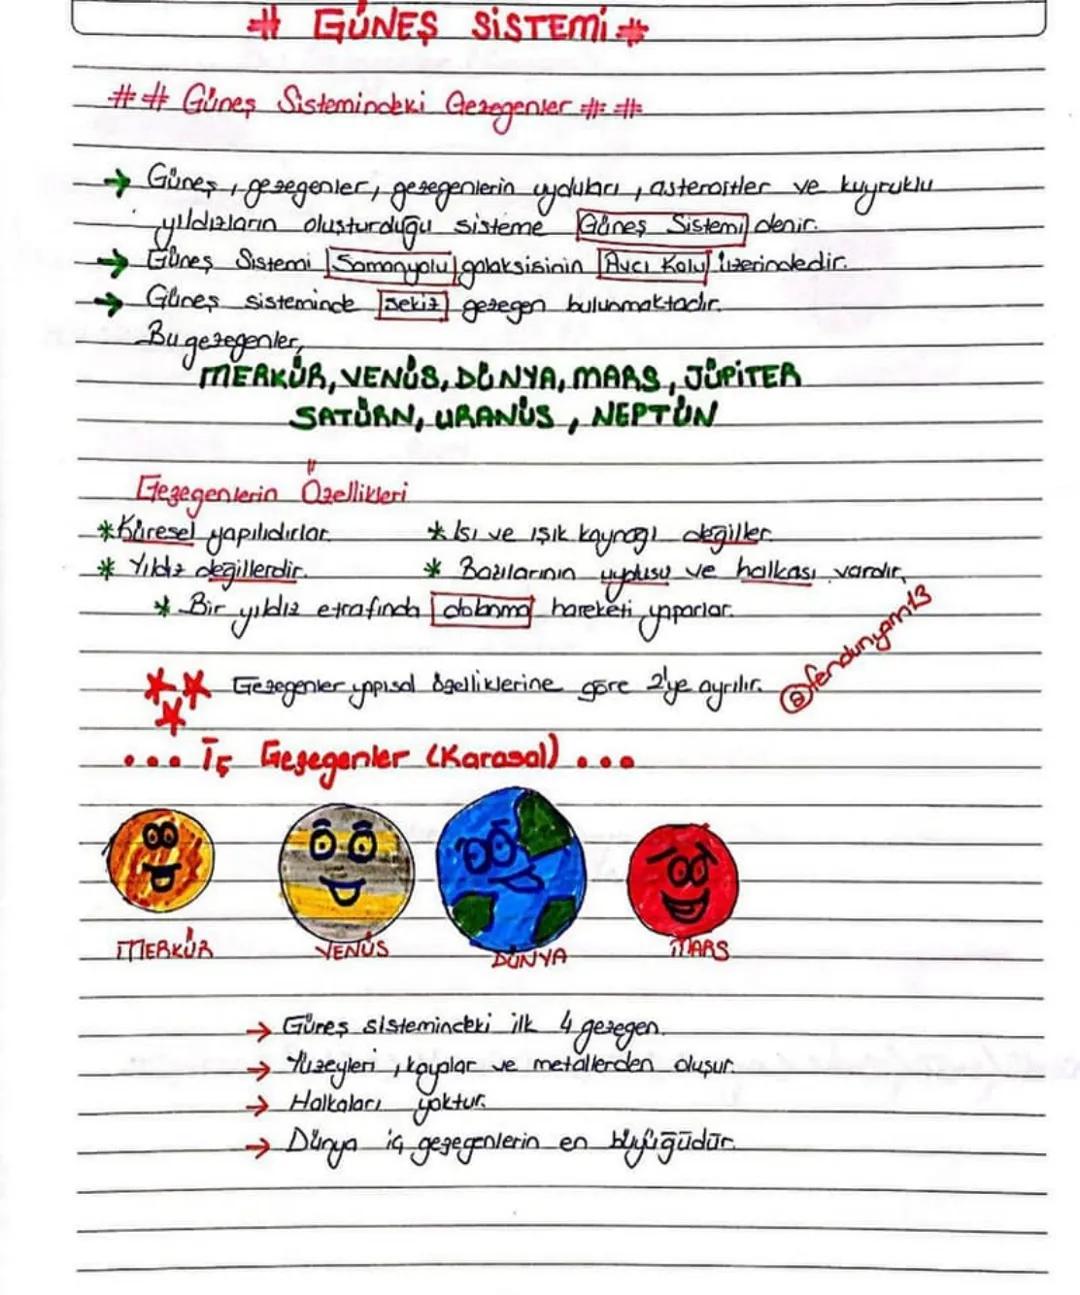 # GÜNEŞ SİSTEMİ #
## Güneş Sistemindeki Gezegenler ##
→ Güneş, gezegenler, gezegenlerin uyduları, asteroitler ve kuyruklu
yıldızların oluşturduğu sisteme Güneş Sistemi denir.
→ Güneş Sistemi Samanyolu galaksisinin Avcı Kolu üzerindedir.
→ Güneş sisteminde sekiz gezegen bulunmaktadır.
Bu gezegenler,
MERKÜR, VENÜS, DÜNYA, MARS, JÜPİTER
SATÜRN, URANÜS, NEPTÜN
Gezegenlerin Özellikleri
* Küresel yapılıdırlar. * Isı ve ışık kaynağı değiller.
* Yıldız değillerdir. * Bazılarının uydusu ve halkası vardır.
* Bir yıldız etrafında dolanma hareketi yaparlar.
@fendunyam13
*** Gezegenler yapısal özelliklerine göre 2'ye ayrılır.
... İç Gezegenler (Karasal) ...
MERKÜR VENÜS DÜNYA MARS
→ Güneş sistemindeki ilk 4 gezegen.
→ Yüzeyleri, kayalar ve metallerden oluşur.
→ Halkaları yoktur.
→ Dünya iç gezegenlerin en büyüğüdür.